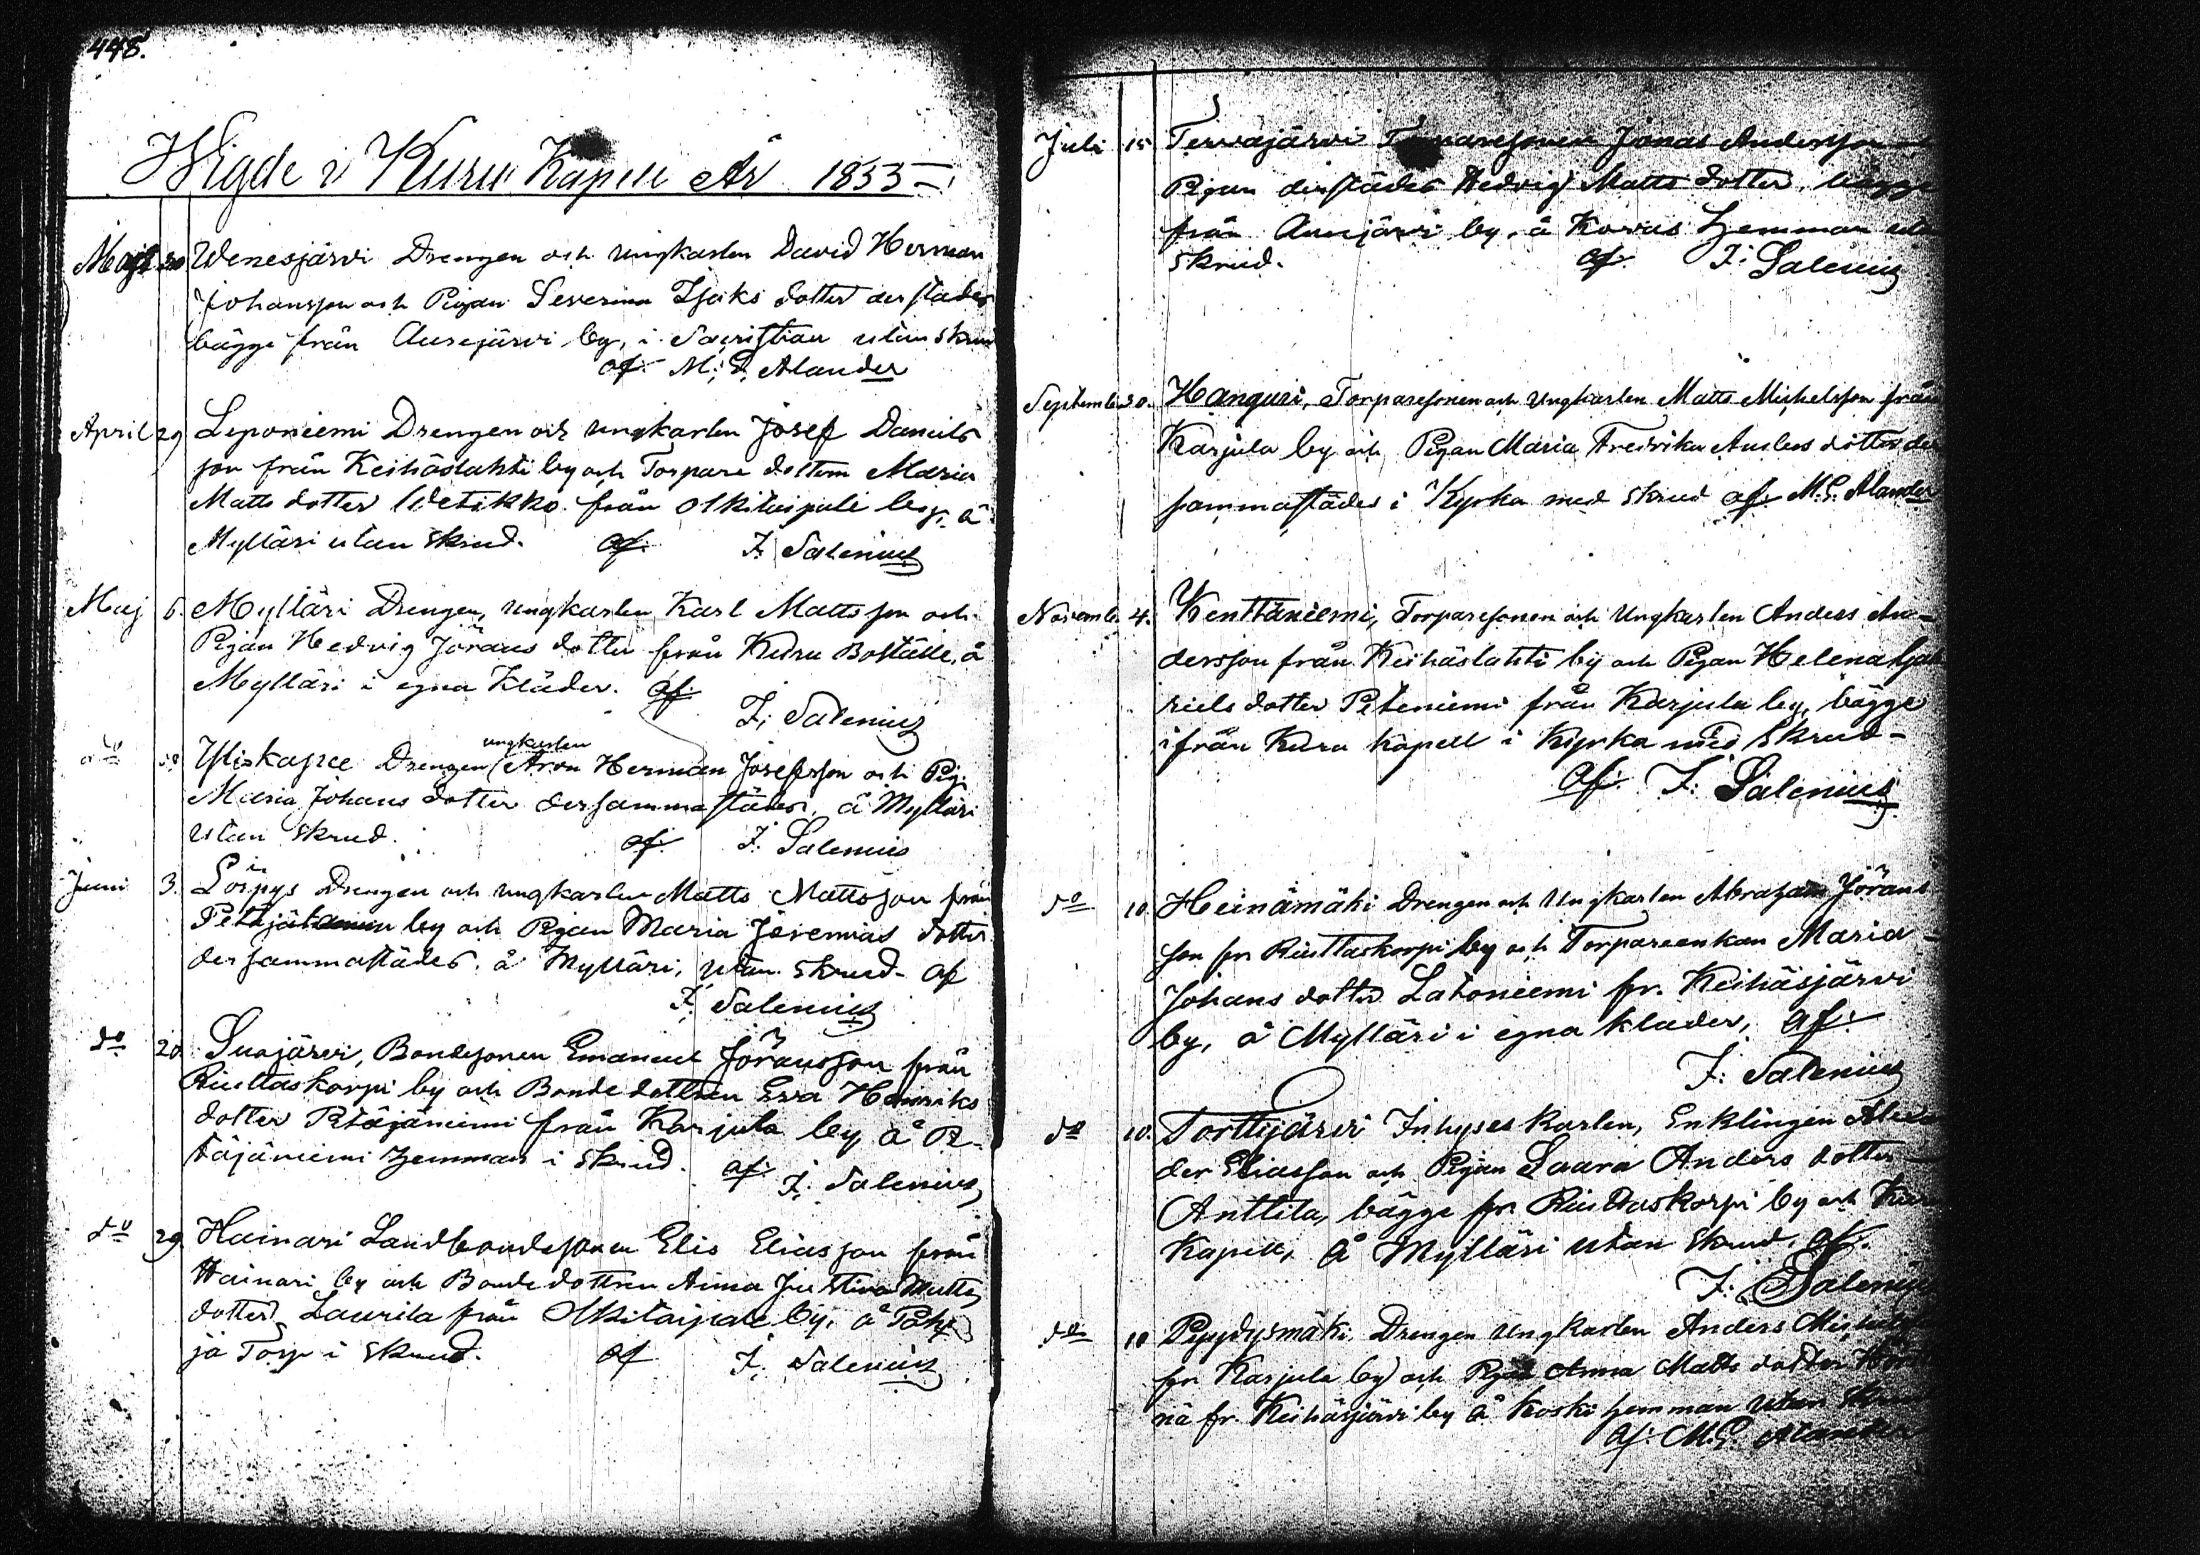 448.
Wigde i Kuru Kapell År 1853
20 Wenesjärvi Drengen och ungkarlen David Herman
Johansson och Pigan Severina Isaks dotter derstädes
bägge från Aurejärvi by, i Sacristian utan skrud
af M: E. Alander
April 29 Leponiemi Drengen och ungkarlen Josef Daniels
son från Keihäslahti by och Torpare dottern Maria
Matts dotter från Olkitaipale by, å
Mylläri utan skrud. af J. Salenius
Maj 6. Mylläri Drengen, ungkarlen Karl Mattsson och
Pigan Hedvig Jörans dotter från Kuru Boställe, å
Mylläri i egna Kläder. af
J. Salenius
do Yliskapee Drengen ungkarlen Aron Herman Josefsson och Pig.
Maria Johans dotter dersammastädes, å Mylläri
utan skrud. af J. Salenius
Juni 3. Löipys Drengen och ungkarlen Matts Mattsson från
by och Pigan Maria Jeremias dotter
dersammastädes, å Mylläri, utan skrud. af
J. Salenius
do 20. Suojärvi, Bondesonen Emanuel Jöransson från
Riuttaskorpi by och Bondedottren Eva Henriks
dotter Petäjäniemi från Karjula by å Pe-
täjäniemi hemman i skrud. af J. Salenius
do 29 Hainari Landbondesonen Elis Eliasson från
Hainari by och Bondedottren Anna Justina Matts
dotter Laurila från Olkitaipale by, å Poh
ja Torp i skrud. af J. Salenius
Juli 15 Tervajärvi Torparesonen Jonas Andersson
Pigan derstädes Hedvig Matts dotter, bägge
från Aurejärvi by, å Kovas hemman utan
skrud. af J. Salenius
Septemb. 30. Hanguri, Torparesonen och Ungkarlen Matts Michelsson från
Karjula by och Pigan Maria Fredrika Anders dotter der
sammastädes i Kyrka med skrud af M. E. Alander
Novemb. 4. Kenttäniemi, Torparesonen och Ungkarlen Anders An-
dersson från Keihäslahti by och Pigan Helena Gab
riels dotter Peteniemi från Karjula by, bägge
ifrån Kuru Kapell i Kyrka med Skrud-
af J. Salenius
do 10. Heinämäki Drengen och Ungkarlen Abraham Jörans
son fr. Riuttaskorpi by och Torpareenkan Maria
Johans dotter Latoniemi fr. Keihäsjärvi
by, å Mylläri i egna kläder, af
J. Salenius
do 10. Torttijärvi Inhyses karlen, Enklingen
der Eliasson och Pigan Saara Anders dotter
Anttila, bägge fr. Riuttaskorpi by och Kuru
Kapell, å Mylläri utan skrud. af.
J. Salenius
do 10 Pyydysmäki, Drengen Ungkarlen Anders
fr. Karjula by och Pigan Anna Matts dotter
nä fr. Keihäsjärvi by å Koski hemman utan skrud
af. M. E. Alander